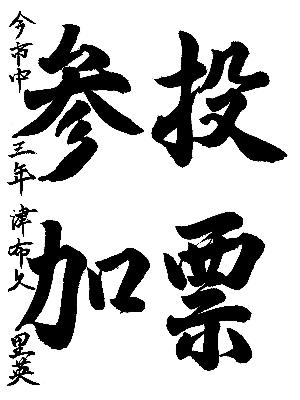 投票
参加
今市中 三年 津布久 里英